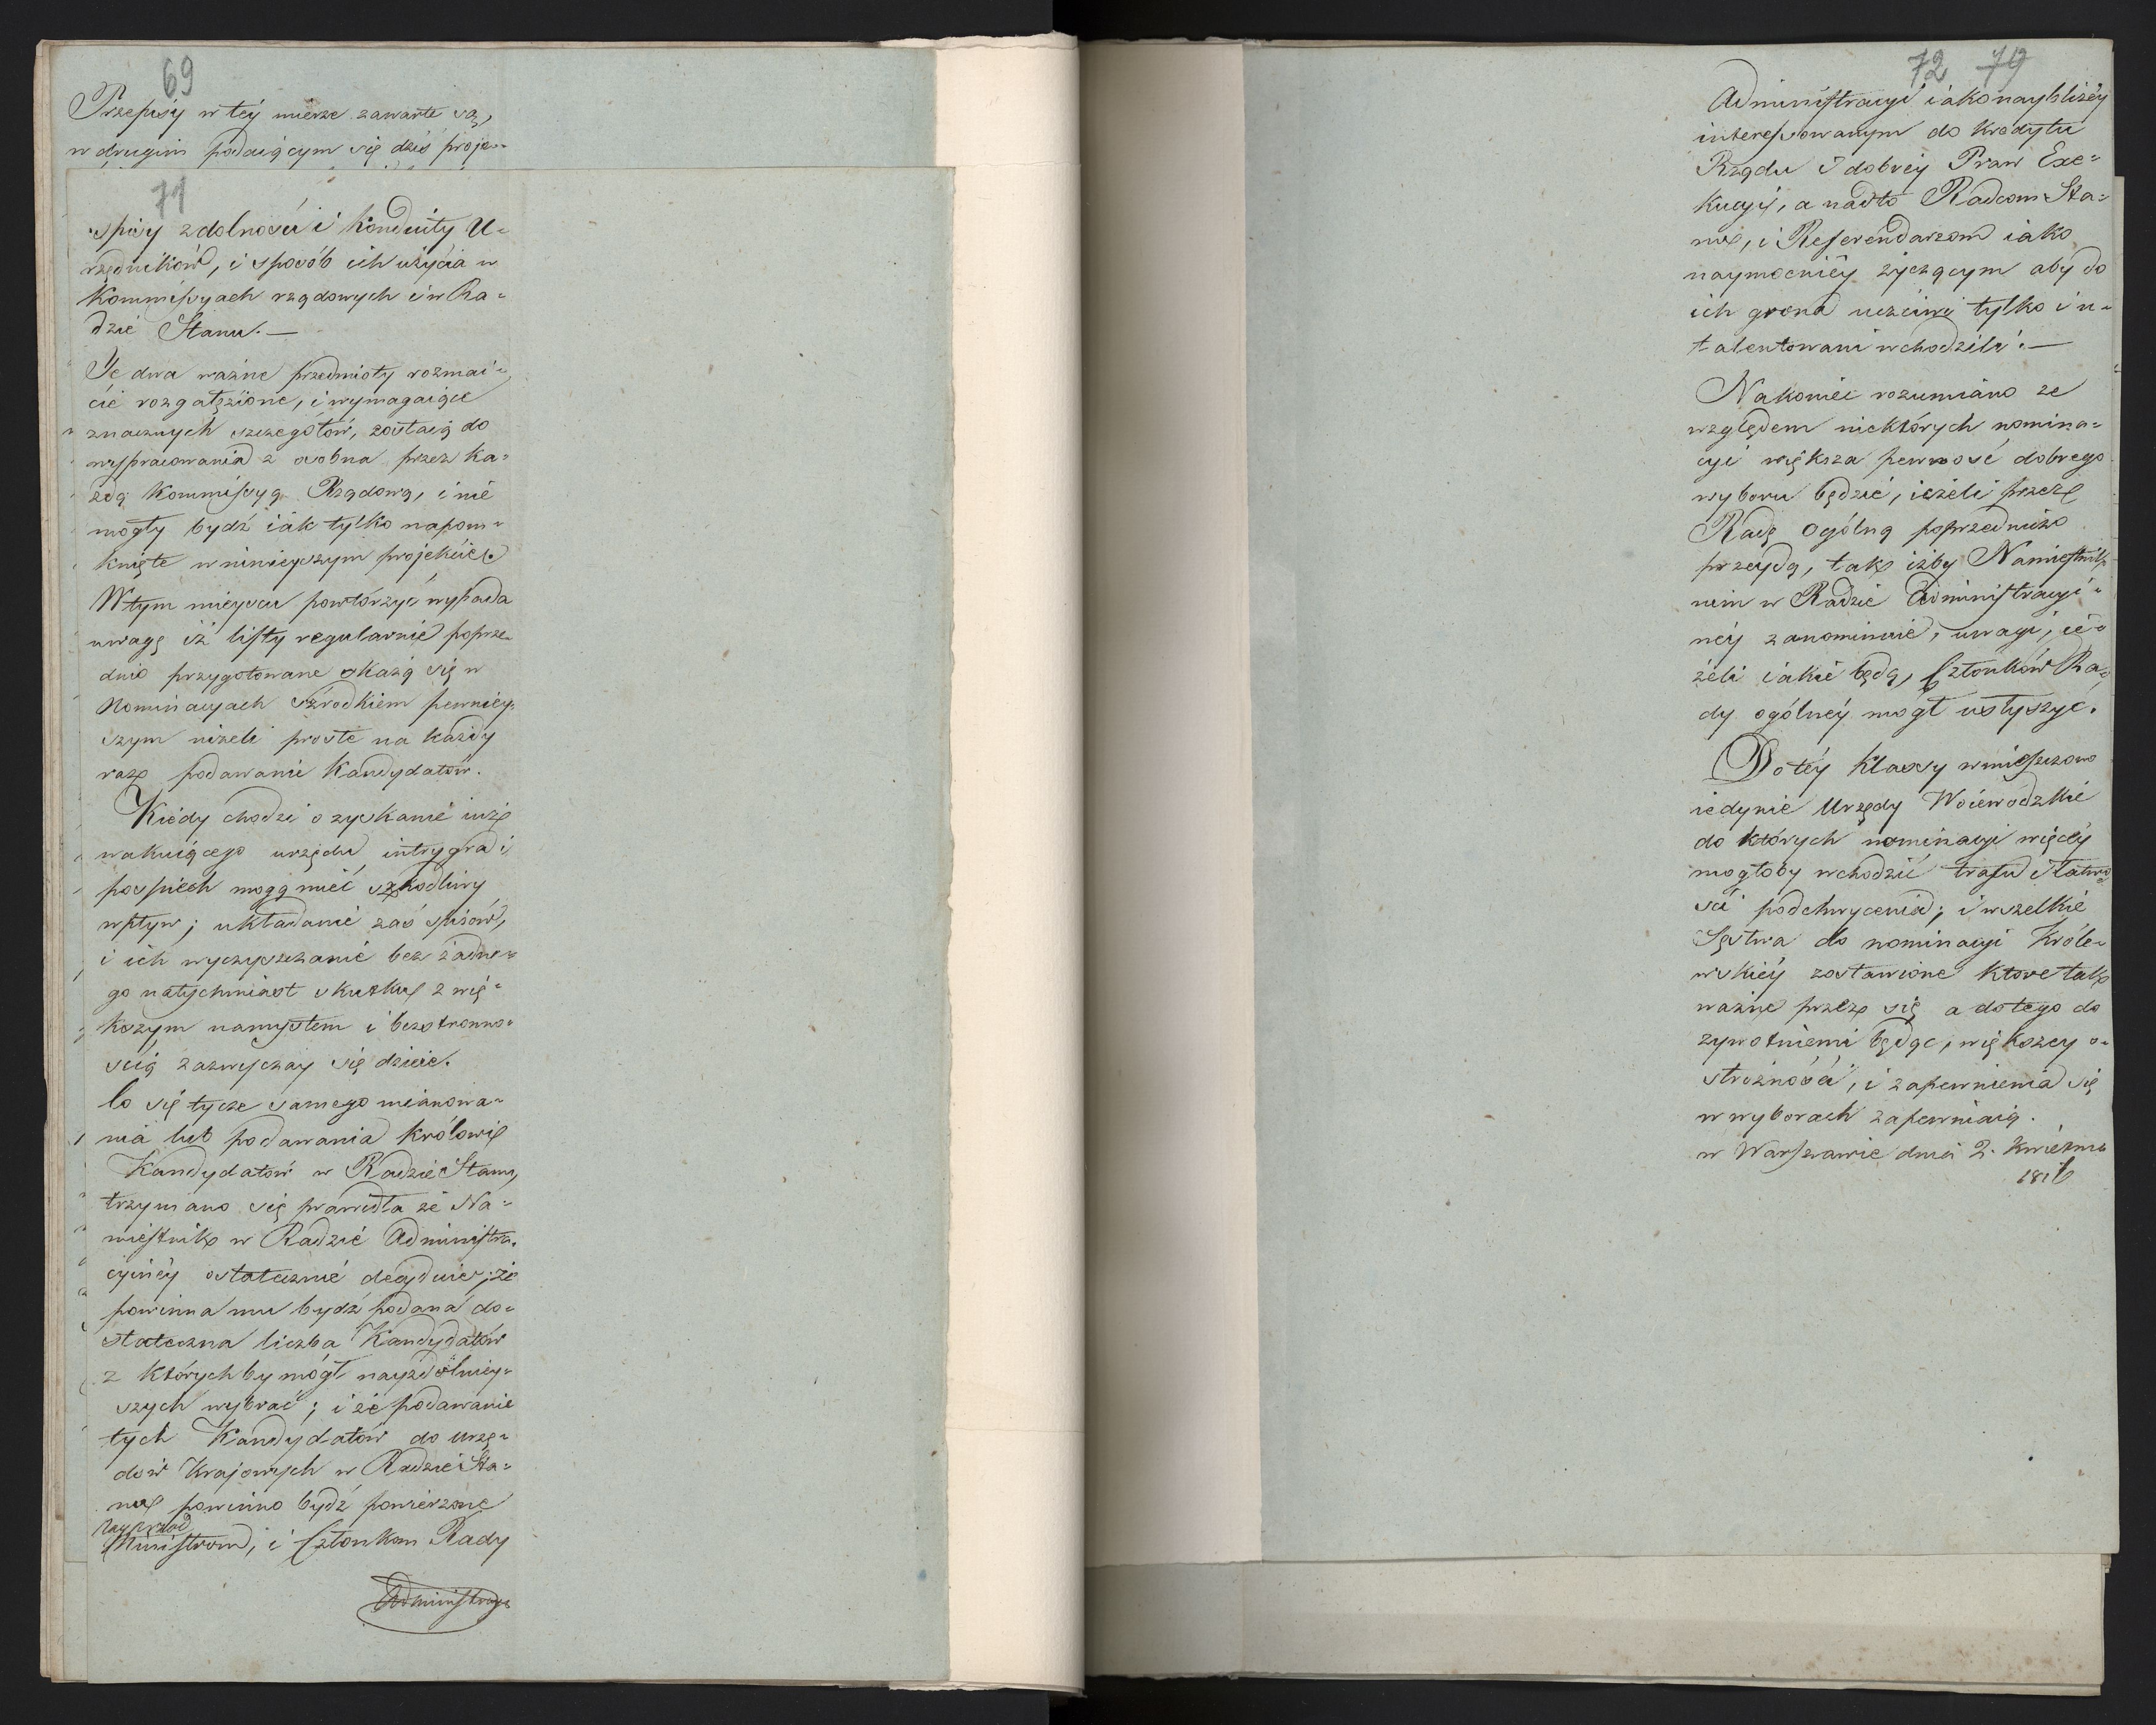 69
Przepisy w téy mierze zawarte są,
w drugim podaiącym się dziś proje-
71
spisy zdolności i konduity U-
rzędników, i sposób ich użycia w
Kommissyach rządowych i w Ra-
dzie Stanu. —
Te dwa ważne przedmioty rozmai-
cie rozgałęzione, i wymagaiące
znacznych szczegółów, zostaią do
wypracowania z osobna przez ka-
żdą Kommissyą Rządową, i nie
mogły bydź iak tylko napom-
knięte w ninieyszym projekcie.
W tym mieyscu powtórzyć wypada
uwagę iż listy regularnie poprze-
dnio przygotowane okażą się w
Nominacyach środkiem pewniey-
szym niżeli proste na każdy
raz podawanie Kandydatów.
Kiedy chodzi o zyskanie iuż
wakuiącego urzędu intryga i
pospiech mogą mieć szkodliwy
wpływ; układanie zaś spisów,
i ich wyczyszczanie bez żadne-
go natychmiast skutku z wię-
kszym namysłem i bezstronno-
scią zazwyczay się dzieie.
Co się tycze samego mianowa-
nia lub podawania Królowi
Kandydatów w Radzie Stanu,
trzymano się prawidła że Na-
miestnik w Radzie Administra-
cyinéy ostatecznie decyduie; że
powinna mu bydź podana do-
stateczna liczba Kandydatów
z których by mógł nayzdolniey-
szych wybrać; i że podawanie
tych Kandydatów do urzę-
dów Krajowych w Radzie Sta-
nu powinno bydź powierzone
nayprzód
Ministrom, i Członkom Rady
Administracyi
72 79
Administracyi iako naybliżéy
interessowanym do kredytu
Rządu i dobréy Praw Exe-
kucyi, a nadto Radcom Sta-
nu, i Referendarzom iako
naymocniéy życzącym aby do
ich grona uczciwi tylko i u-
talentowani wchodzili. —
Nakoniec rozumiano że
względem niektórych nomina-
cyi większa pewność dobrego
wyboru będzie, ieżeli przez
Radę ogólną poprzedniczo
przeydą, tak iżby Namiestnik
nim w Radzie Administracyi-
néy zanominuie, uwagi, ie-
żeli iakie będą, Członków Ra-
dy ogólnéy mógł usłyszyć.
Do téy klassy wmieszczono
iedynie Urzędy Woiewódzkie
do których nominacyi więcéy
mogłoby wchodzić trafu i łatwo
ści podchwycenia; i wszelkie
Sęstwa do nominacyi Króle-
wskiéy zostawione ktore tak
ważne przez się a do tego do
żywotniemi będąc, większey o-
strożności, i zapewnienia się
w wyborach zapewniaią.
w Warszawie dnia 2. Kwietnia
1816